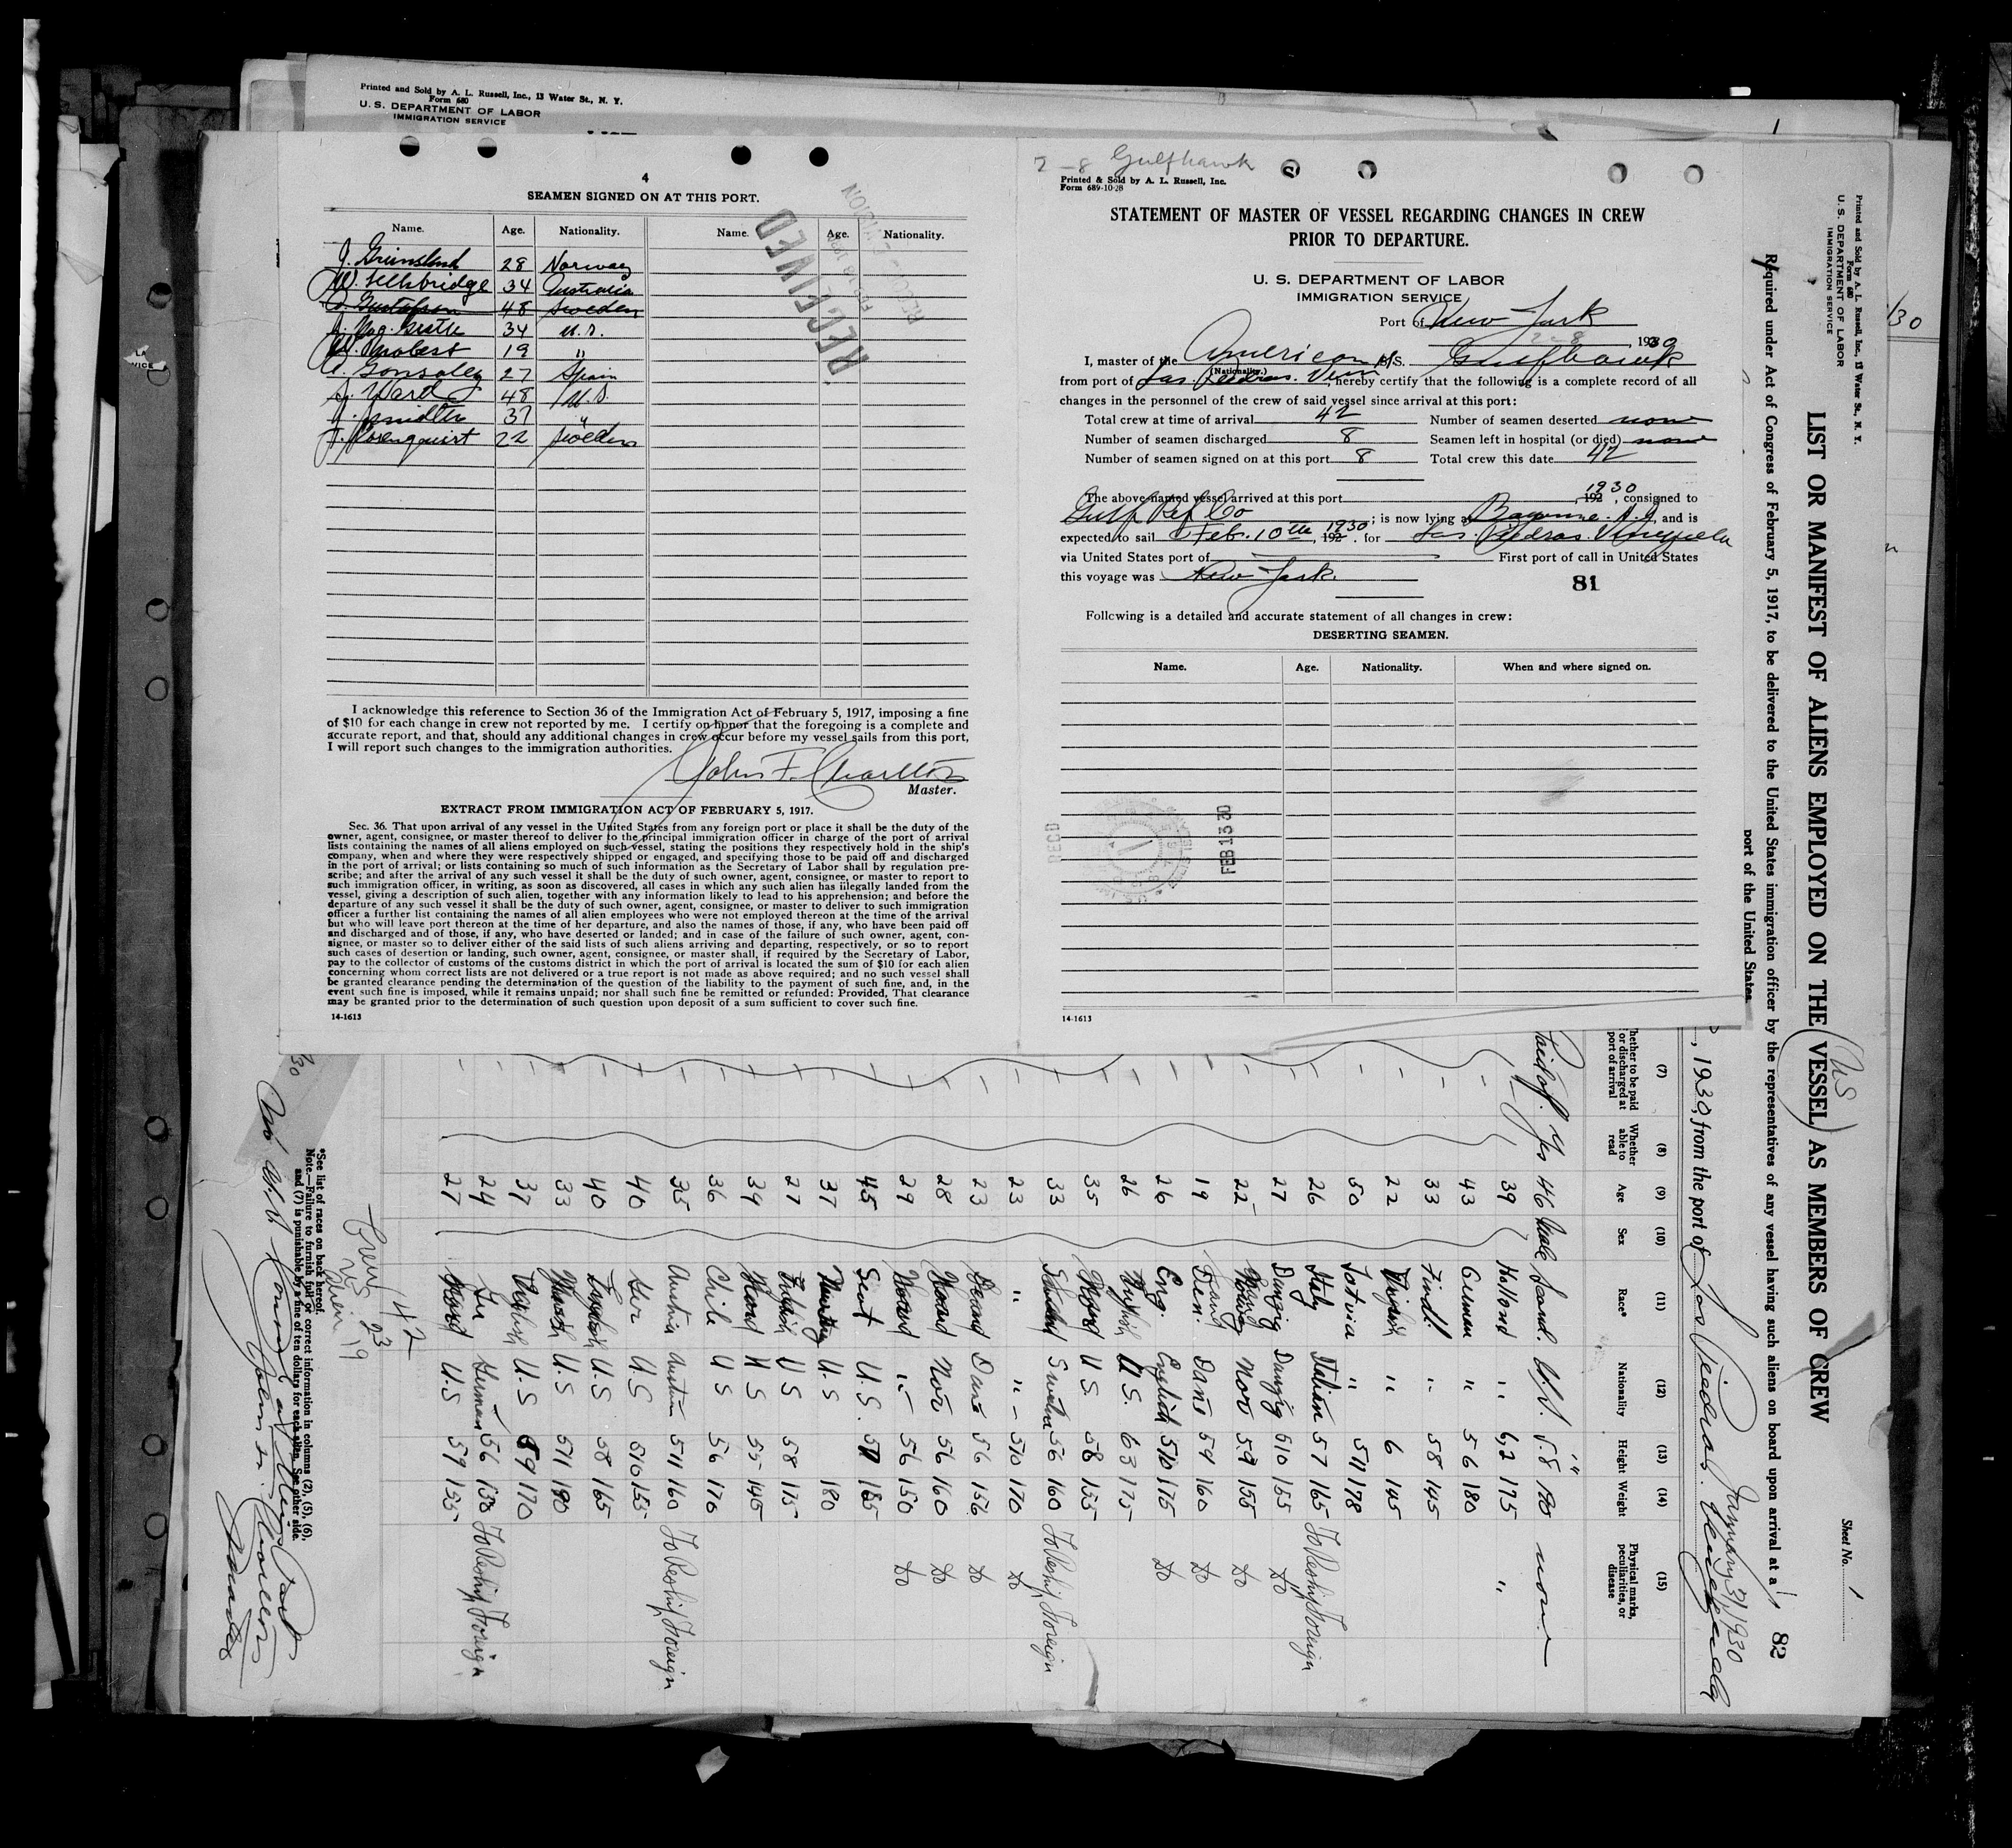 Printed and Sold by A. L. Russell, Inc., 13 Water St., N. Y.
Form 680
U. S. DEPARTMENT OF LABOR
IMMIGRATION SERVICE
4
SEAMEN SIGNED ON AT THIS PORT.
Name. Age. Nationality. Name. Age. Nationality.
28 Norway
34 Australia
Gustafson 48 Sweden
34 U.S.
19 "
Gonsoley 27 Spain
Ward 48 U.S.
37 "
Rosenquist 22 Sweden
RECEIVED
I acknowledge this reference to Section 36 of the Immigration Act of February 5, 1917, imposing a fine
of $10 for each change in crew not reported by me. I certify on honor that the foregoing is a complete and
accurate report, and that, should any additional changes in crew occur before my vessel sails from this port,
I will report such changes to the immigration authorities.
John F. Charlton
Master.
EXTRACT FROM IMMIGRATION ACT OF FEBRUARY 5, 1917.
Sec. 36. That upon arrival of any vessel in the United States from any foreign port or place it shall be the duty of the
owner, agent, consignee, or master thereof to deliver to the principal immigration officer in charge of the port of arrival
lists containing the names of all aliens employed on such vessel, stating the positions they respectively hold in the ship's
company, when and where they were respectively shipped or engaged, and specifying those to be paid off and discharged
in the port of arrival; or lists containing so much of such information as the Secretary of Labor shall by regulation pre-
scribe; and after the arrival of any such vessel it shall be the duty of such owner, agent, consignee, or master to report to
such immigration officer, in writing, as soon as discovered, all cases in which any such alien has illegally landed from the
vessel, giving a description of such alien, together with any information likely to lead to his apprehension; and before the
departure of any such vessel it shall be the duty of such owner, agent, consignee, or master to deliver to such immigration
officer a further list containing the names of all alien employees who were not employed thereon at the time of the arrival
but who will leave port thereon at the time of her departure, and also the names of those, if any, who have been paid off
and discharged and of those, if any, who have deserted or landed; and in case of the failure of such owner, agent, con-
signee, or master so to deliver either of the said lists of such aliens arriving and departing, respectively, or so to report
such cases of desertion or landing, such owner, agent, consignee, or master shall, if required by the Secretary of Labor,
pay to the collector of customs of the customs district in which the port of arrival is located the sum of $10 for each alien
concerning whom correct lists are not delivered or a true report is not made as above required; and no such vessel shall
be granted clearance pending the determination of the question of the liability to the payment of such fine, and, in the
event such fine is imposed, while it remains unpaid; nor shall such fine be remitted or refunded: Provided, That clearance
may be granted prior to the determination of such question upon deposit of a sum sufficient to cover such fine.
14-1613
2-8 Gulfhawk
Printed & Sold by A. L. Russell, Inc.
Form 689-10-28
STATEMENT OF MASTER OF VESSEL REGARDING CHANGES IN CREW
PRIOR TO DEPARTURE.
U. S. DEPARTMENT OF LABOR
IMMIGRATION SERVICE
Port of New York
2-8, 1930
I, master of the American S.S. Gulfhawk
(Nationality.)
from port of Las Piedras. Venz, hereby certify that the following is a complete record of all
changes in the personnel of the crew of said vessel since arrival at this port:
Total crew at time of arrival 42 Number of seamen deserted none
Number of seamen discharged 8 Seamen left in hospital (or died) none
Number of seamen signed on at this port 8 Total crew this date 42
The above-named vessel arrived at this port 192 1930, consigned to
Gulf Ref Co; is now lying at Bayonne. N.J., and is
expected to sail Feb. 10th, 192 1930. for Las. Piedras. Venezuela
via United States port of First port of call in United States
this voyage was New York.
81
Following is a detailed and accurate statement of all changes in crew:
DESERTING SEAMEN.
Name. Age. Nationality. When and where signed on.
RECD
FEB 13 30
14-1613
Printed and Sold by A. L. Russell, Inc., 13 Water St., N. Y.
Form 680
U. S. DEPARTMENT OF LABOR
IMMIGRATION SERVICE
Sheet No. 1
US
LIST OR MANIFEST OF ALIENS EMPLOYED ON THE VESSEL AS MEMBERS OF CREW
82
Required under Act of Congress of February 5, 1917, to be delivered to the United States immigration officer by the representatives of any vessel having such aliens on board upon arrival at a
port of the United States
January 31/1930
, 1930, from the port of Las Piedras. Venezuela
(7) (8) (9) (10) (11) (12) (13) (14) (15)
hether to be paid or discharged at port of arrival
Whether able to read
Age
Sex
Race*
Nationality
Height
Weight
Physical marks, peculiarities, or disease
Paid off. Yes 46 Male Scand. U.S. 5.8 180 none
39 Holland " 6,2 175 "
43 German " 56 180
33 Finl! " 58 145
22 English " 6 145
50 Latvia " 511 178
26 Italy Italian 57 165 To Reship Foreign
27 Danzig Danzig 510 155 do
22 Nor 59 155 do
19 Den. Dane 59 160 do
26 Eng. English 510 175 do
26 English U.S. 63 175
35 U S 58 155
33 Sweden 56 160 To Reship Foreign
23 " " 510 170 do
23 Dane 56 156 do
28 Nor 56 160 do
29 " 56 150 do
45 Scot U.S. 57 185
37 U.S 180
27 English U S 58 175
34 U S 55 145
36 Chile U S 56 170
35 Austria Austrian 511 160 To Reship Foreign
40 Ger U.S 510 155
40 English U.S 58 165
33 U.S 511 190
37 English U.S 59 170
24 Ger German 56 130 To Reship Foreign
27 U.S 59 155
Crew 42
US 23
Alien 19
*See list of races on back hereof.
Note.—Failure to furnish full or correct information in columns (2), (5), (6),
and (7) is punishable by a fine of ten dollars for each alien. See other side.